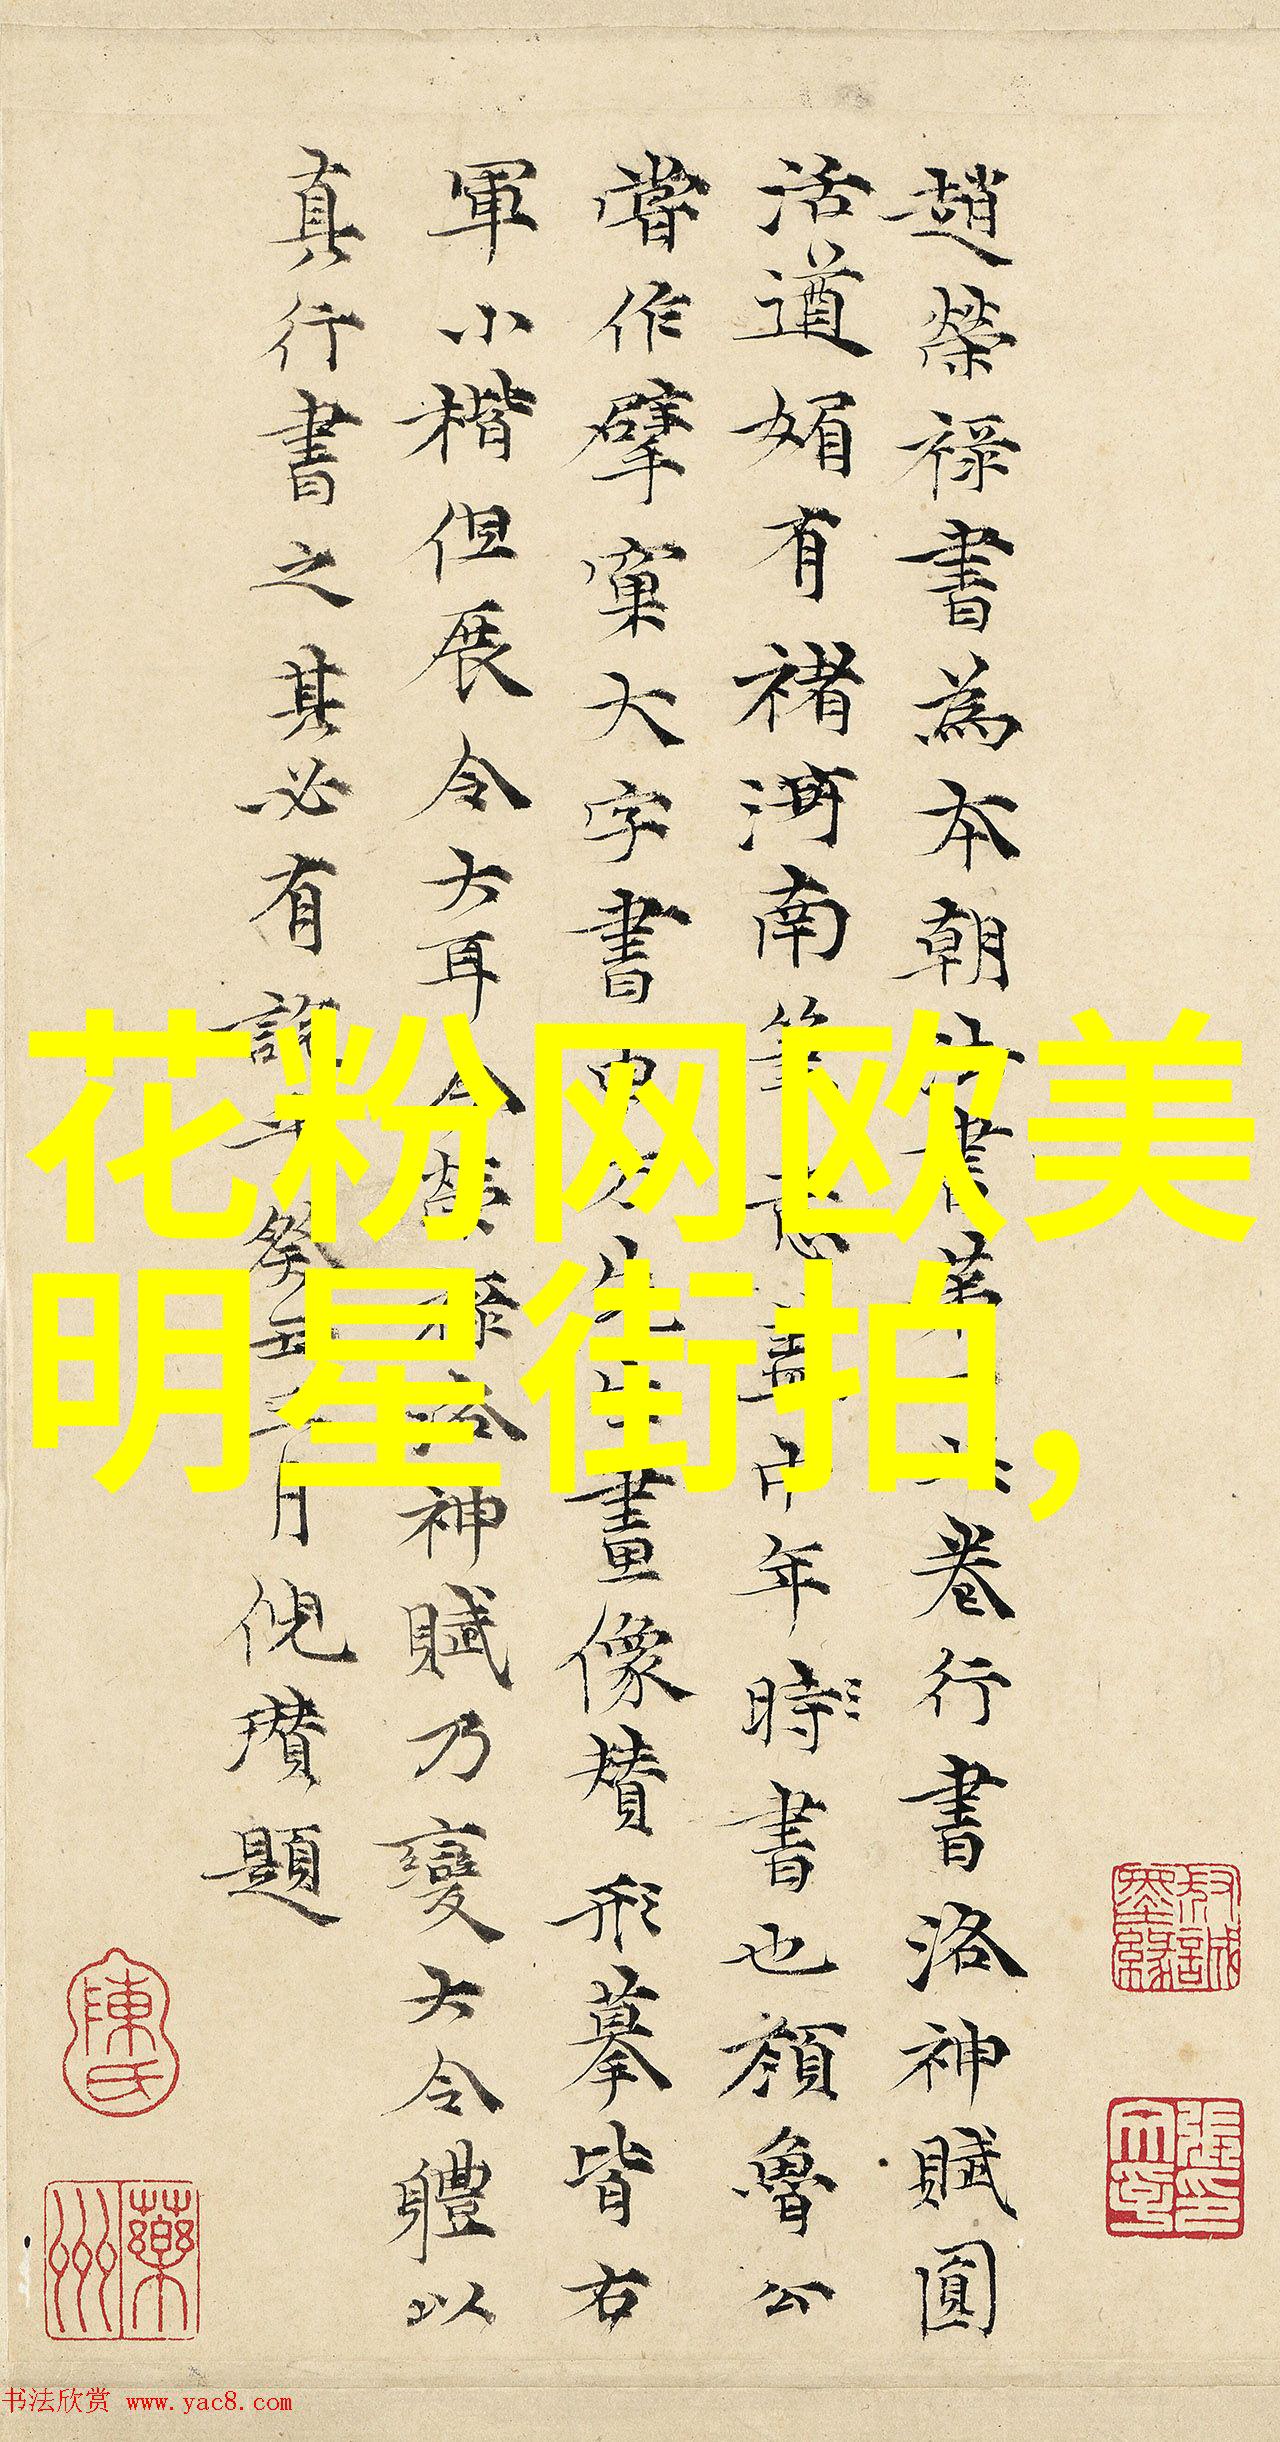 趙榮祿書為本朝
卷行書洛神賦圓
活遒媚有褚河南筆意蓋
年時書也顏魯公
嘗作擘窠大字書
畫像贊形摹皆右
軍小楷但展令大耳今
神賦乃變大令體以
真行書之其必有
月倪瓚題
花粉网欧美
明星街拍,
陳氏
藥洲
书法欣赏 www.yac8.com